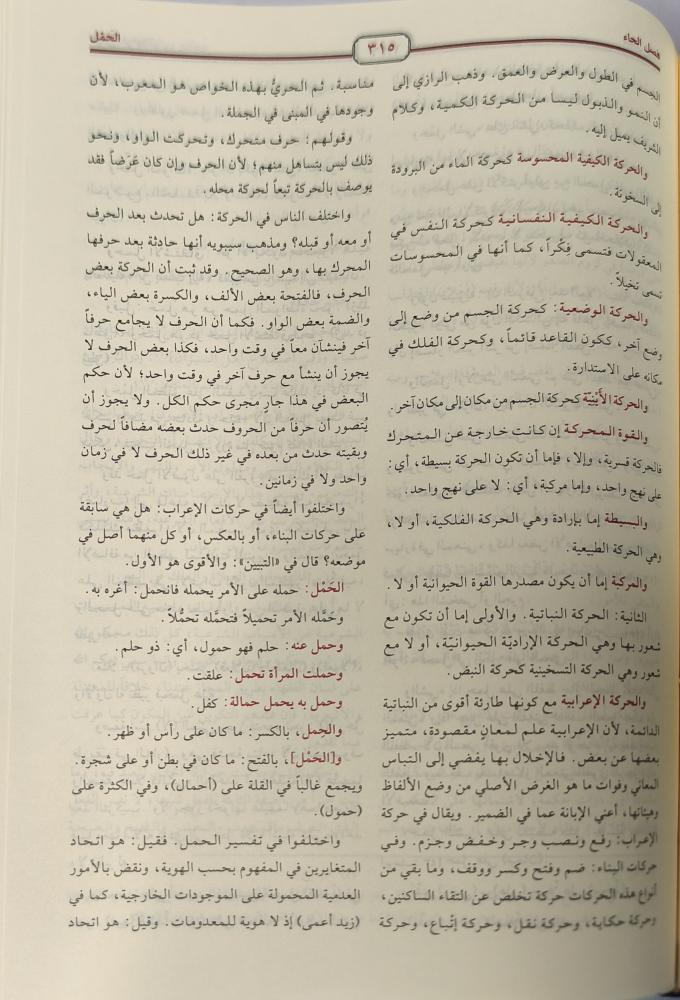 فصل الحاء
٣١٥
الحَمْل
الجسم في الطول والعرض والعمق. وذهب الرازي إلى
أن النمو والذبول ليسا من الحركة الكمية، وكلام
الشريف يميل إليه.
والحركة الكيفية المحسوسة كحركة الماء من البرودة
إلى السخونة.
والحركة الكيفية النفسانية كحركة النفس في
المعقولات فتسمى فِكْراً، كما أنها في المحسوسات
تسمى تخيلاً.
والحركة الوضعية: كحركة الجسم من وضع إلى
وضع آخر، ككون القاعد قائماً، وكحركة الفلك في
مكانه على الاستدارة.
والحركة الأَيْنِيّة كحركة الجسم من مكان إلى مكان آخر.
والقوة المحركة إن كانت خارجة عن المتحرك
فالحركة قسرية، وإلا، فإما أن تكون الحركة بسيطة، أي:
على نهج واحد، وإما مركبة، أي: لا على نهج واحد.
والبسيطة إما بإرادة وهي الحركة الفلكية، أو لا،
وهي الحركة الطبيعية.
والمركبة إما أن يكون مصدرها القوة الحيوانية أو لا.
الثانية: الحركة النباتية. والأولى إما أن تكون مع
شعور بها وهي الحركة الإراديّة الحيوانيّة، أو لا مع
شعور وهي الحركة التسخينية كحركة النبض.
والحركة الإعرابية مع كونها طارئة أقوى من النباتية
الدائمة، لأن الإعرابية علم لمعانٍ مقصودة، متميز
بعضها عن بعض. فالإخلال بها يفضي إلى التباس
المعاني وفوات ما هو الغرض الأصلي من وضع الألفاظ
وهيئاتها، أعني الإبانة عما في الضمير. ويقال في حركة
الإعراب: رفع ونصب وجر وخفض وجزم. وفي
حركات البناء: ضم وفتح وكسر ووقف، وما بقي من
أنواع هذه الحركات حركة تخلص عن التقاء الساكنين،
وحركة حكاية، وحركة نقل، وحركة إتْباع، وحركة
مناسبة. ثم الحريُّ بهذه الخواص هو المعرب، لأن
وجودها في المبنى في الجملة.
وقولهم: حرف متحرك، وتحركت الواو، ونحو
ذلك ليس بتساهل منهم؛ لأن الحرف وإن كان عَرَضاً فقد
يوصف بالحركة تبعاً لحركة محله.
واختلف الناس في الحركة: هل تحدث بعد الحرف
أو معه أو قبله؟ ومذهب سيبويه أنها حادثة بعد حرفها
المحرك بها، وهو الصحيح. وقد ثبت أن الحركة بعض
الحرف، فالفتحة بعض الألف، والكسرة بعض الياء،
والضمة بعض الواو. فكما أن الحرف لا يجامع حرفاً
آخر فينشآن معاً في وقت واحد، فكذا بعض الحرف لا
يجوز أن ينشأ مع حرف آخر في وقت واحد؛ لأن حكم
البعض في هذا جارٍ مجرى حكم الكل. ولا يجوز أن
يُتصور أن حرفاً من الحروف حدث بعضه مضافاً لحرف
وبقيته حدث من بعده في غير ذلك الحرف لا في زمان
واحد ولا في زمانين.
واختلفوا أيضاً في حركات الإعراب: هل هي سابقة
على حركات البناء، أو بالعكس، أو كل منهما أصل في
موضعه؟ قال في «التبيين»: والأقوى هو الأول.
الحَمْل: حمله على الأمر يحمله فانحمل: أغره به.
وحَمَّله الأمر تحميلاً فتحمَّله تحمُّلاً.
وحمل عنه: حلم فهو حمول، أي: ذو حلم.
وحملت المرأة تحمل: علقت.
وحمل به يحمل حمالة: كفل.
والحِمل، بالكسر: ما كان على رأس أو ظهر.
و[الحَمْل]، بالفتح: ما كان في بطن أو على شجرة.
ويجمع غالباً في القلة على (أحمال)، وفي الكثرة على
(حمول).
واختلفوا في تفسير الحمل. فقيل: هو اتحاد
المتغايرين في المفهوم بحسب الهوية، ونقض بالأمور
العدمية المحمولة على الموجودات الخارجية، كما في
(زيد أعمى) إذ لا هوية للمعدومات. وقيل: هو اتحاد